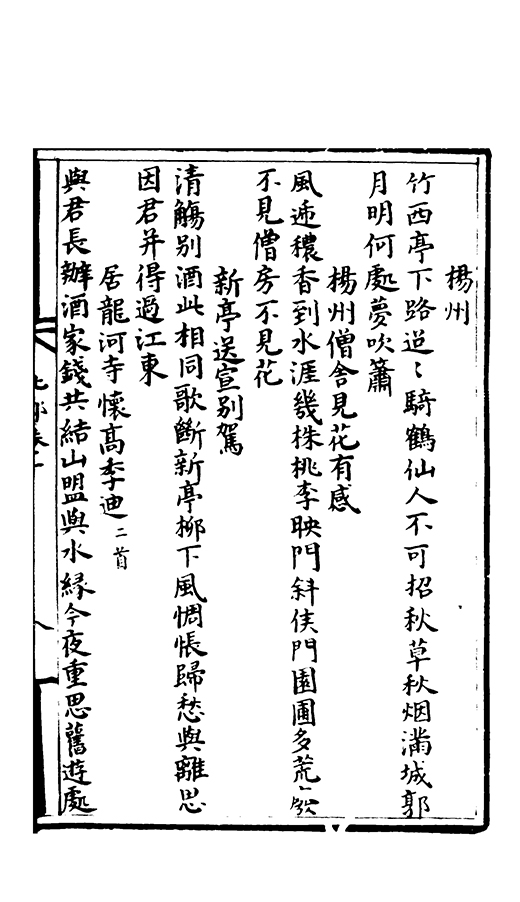 楊州
竹西亭下路迢〻騎鶴仙人不可招秋草秋烟滿城郭
月明何處夢吹簫
楊州僧舍見花有感
風逓穠香到水涯幾株桃李映門斜侯門園圃多荒
不見僧房不見花
新亭送宣别駕
清觴别酒此相同歌斷新亭柳下風惆悵歸愁與離思
因君并得過江東
居龍河寺懷高季迪二首
與君長辦酒家錢共結山盟與水緣今夜重思舊遊處